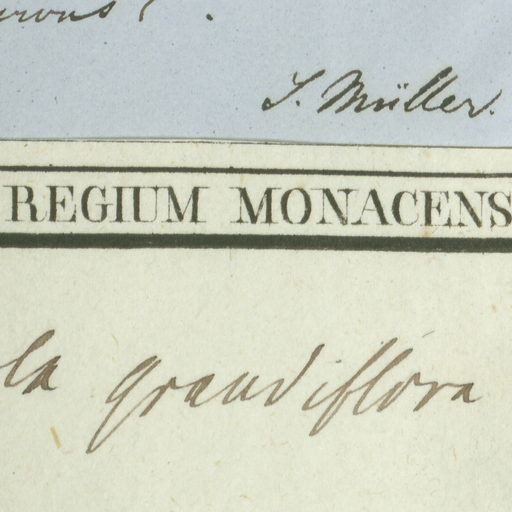 J. Müller.
REGIUM MONACENS
la grandiflora